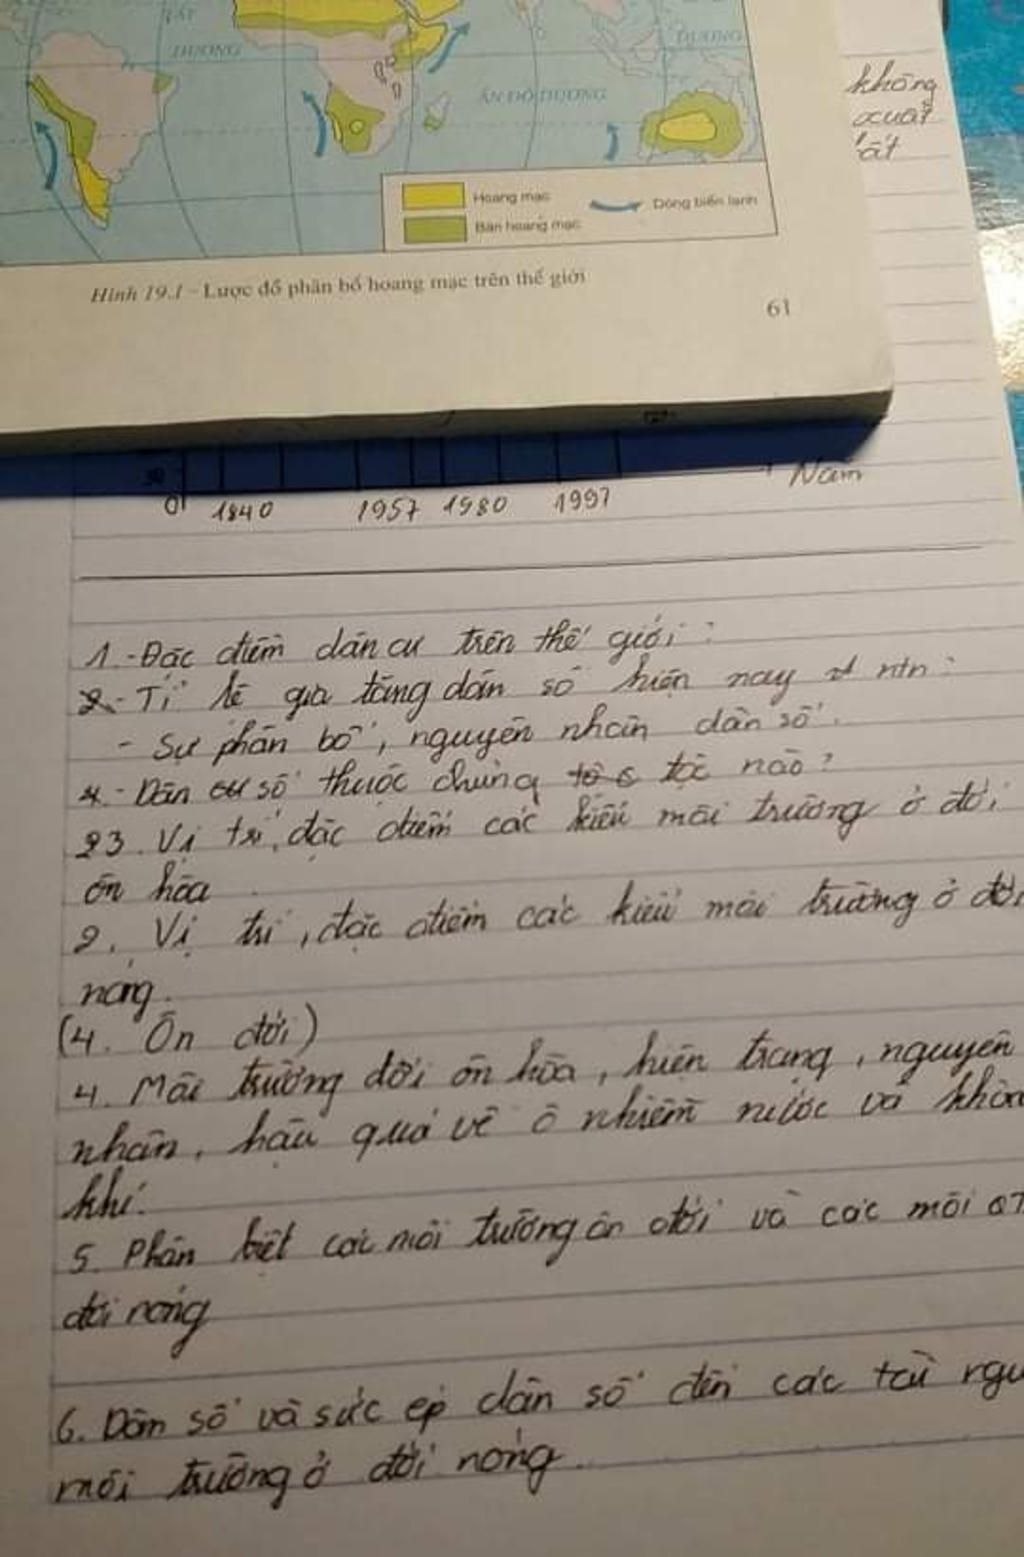 TÂY
DƯƠNG
DƯƠNG
ẤN ĐỘ DƯƠNG
không
xuất
Hoang mạc
Bán hoang mạc
Dòng biển lạnh
Hình 19.1 - Lược đồ phân bố hoang mạc trên thế giới
61
0 1840 1957 1980 1997 Năm
1.-Đặc điểm dân cư trên thế giới:
2.-Tỉ lệ gia tăng dân số hiện nay ntn:
- Sự phân bố, nguyên nhân dân số.
4.- Dân số thuộc chủng tộc nào?
3. Vị trí, đặc điểm các kiểu môi trường ở đới
ôn hòa
2. Vị trí, đặc điểm các kiểu môi trường ở đới
nóng.
(4. Ôn đới)
4. Môi trường đới ôn hòa, hiện trạng, nguyên
nhân, hậu quả về ô nhiễm nước và
khí.
5. Phân biệt các môi trường ôn đới và các môi
đới nóng
6. Dân số và sức ép dân số đến các tài
môi trường ở đới nóng